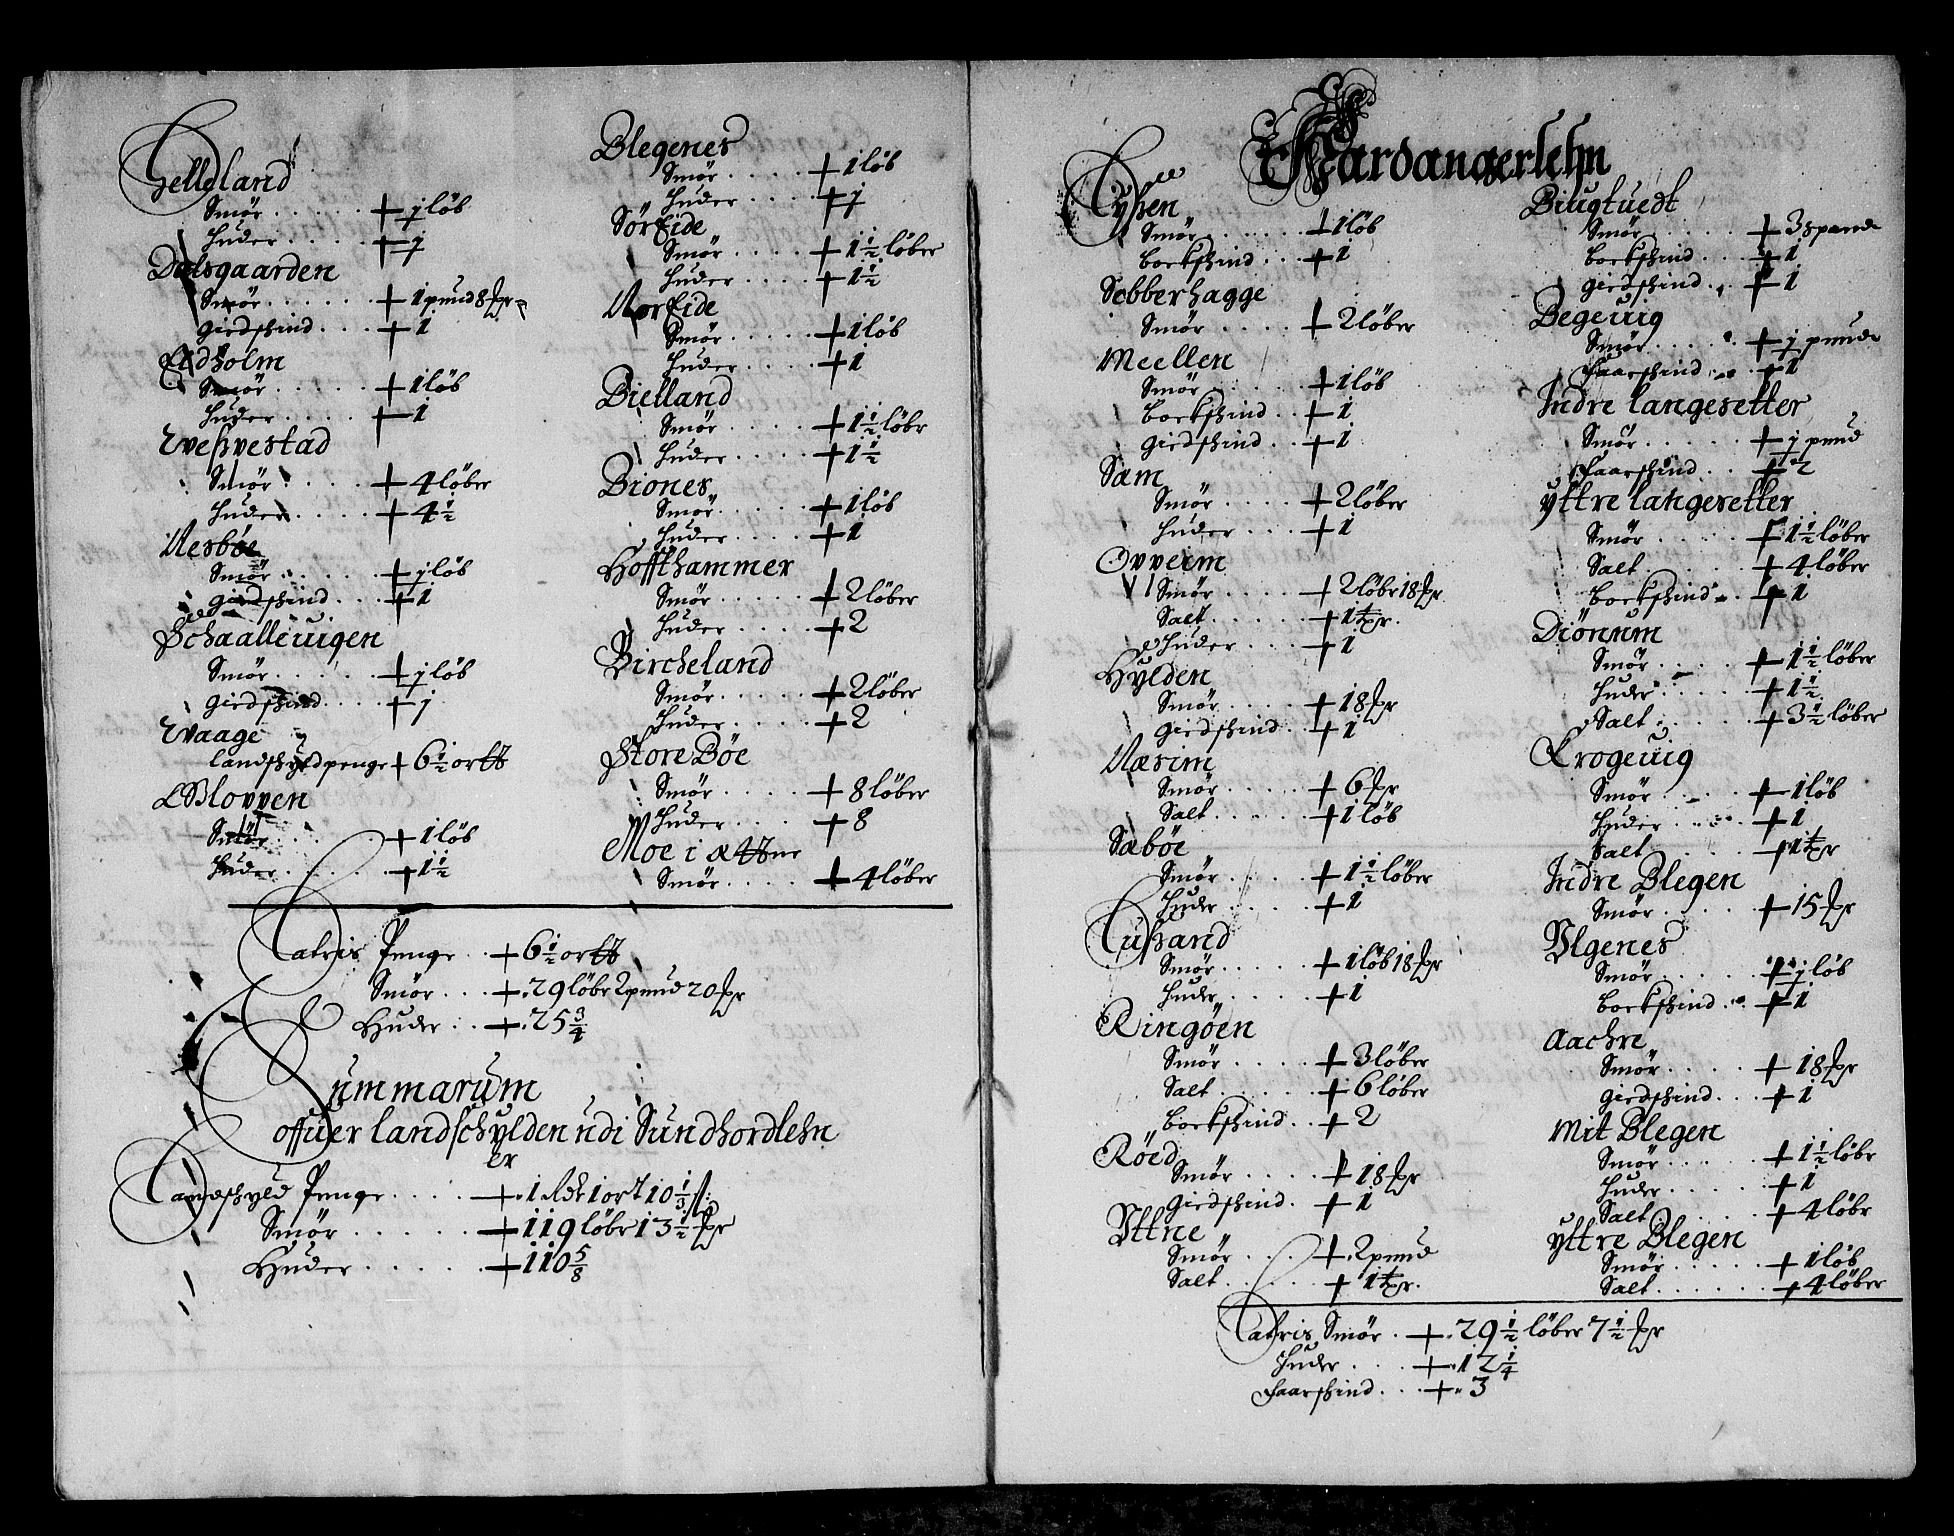 Helleland
Smör . . . . . + j löb
Huder . . . . + j
Dalsgaarden
Smör . . . . . + 1 pund 8 pr
giedschind . . . + 1
Eidholm
Smör . . . . . + 1 löb
Huder . . . . + 1
Eveßvestad
Smör . . . . + 4 löber
Huder . . . . + 4 1/2
Nesböe
Smör . . . . + j löb
giedschind . . . + 1
Schaalleuigen
Smör . . . . . + j löb
giedschind . . . . + j
Evaage
landschyldpenge + 6 1/2 ort
Blovven
Smör . . . . + 1 löb
Huder . . . . . + 1 1/2
Blegenes
Smör . . . . + 1 löb
Huder . . . . + j
SörEide
Smör . . . . + 1 1/2 löber
Huder . . . . + 1 1/2
NorEide
Smör . . . . . + 1 löb
Huder . . . . + 1
Bielland
Smör . . . . + 1 1/2 löbr
Huder . . . . + 1 1/2
Biones
Smör . . . . . + 1 löb
Huder . . . . + 1
Hoffthammer
Smör . . . . . + 2 löber
Huder . . . . + 2
Bircheland
Smör . . . . . + 2 löber
Huder . . . . + 2
Store Böe
Smör . . . . + 8 löber
Huder . . . + 8
Moe i Ættne
Smör . . . . + 4 löber
Latris Penge . . + 6 1/2 ort
Smör . . . + 29 löbr 2 pund 20 pr
Huder . . + 25 3/4
Summarum
offuer landschylden udi Sundhordlehn
er
Landschyld Penge . . . . + 1 dlr 1 ort 10 1/3 ß:
Smör . . . . . + 119 löbr 13 1/2 pr
Huder . . . . . + 110 5/8
Hardangerlehn
Tyßen
Smör . . . . . . + 1 löb
bockschind . . . + 1
Sebberhagge
Smör . . . . + 2 löber
Meellen
Smör . . . . . + 1 löb
bockschind . . + 1
giedschind . . + 1
Sæm
Smör . . . . + 2 löber
Huder . . . . + 1
Ovverm
Smör . . . . + 2 löbr 18 pr
Salt . . . . . + 1 tpr.
Huder . . . . + 1
Hylden
Smör . . . . . + 18 pr
giedschind . . + 1
Næsim
Smör . . . . . + 6 pr
Salt . . . . . + 1 löb
Sæböe
Smör . . . . + 1 1/2 löber
Huder . . . . + 1
Lußand
Smör . . . . . + 1 löb 18 pr
Huder . . . . . + 1
Ringöen
Smör . . . . + 3 löber
Salt . . . . . + 6 löber
bockschind . . + 2
Röed
Smör . . . . . + 18 pr
giedschind . + 1
Uttne
Smör . . . + 2 pund
Salt . . . . . + 1 tpr.
Biugtuedt
Smör . . . . . + 3 spande
bockschind . . . + 1
giedschind . . + 1
Begeuig
Smör . . . . + j punde
Faarschind . . + 1
Indre langesetter
Smör . . . . . + j pund
Faarschind . . + 2
yttre langesetter
Smör . . . . . + 1 1/2 löber
Salt . . . . . + 4 löber
bockschind . . + 1
Diönum
Smör . . . . + 1 1/2 löber
Huder . . . . . + 1 1/2
Salt . . . . . + 3 1/2 löber
Krogeuig
Smör . . . . + 1 löb
Huder . . . . + 1
Salt . . . . . + 1 tpr
Indre Blegen
Smör . . . . . + 15 pr
Ulgenes
Smör . . . . . + j löb
bockschind . . . + 1
Aachre
Smör . . . . . + 18 pr
giedschind . . . + 1
Mit Blegen
Smör . . . . . + 1 1/2 löbr
Huder . . . . . + 1
Salt . . . . . + 4 löbr
yttre Blegen
Smör . . . . . + 1 löb
Salt . . . . . . + 4 löber
Latris Smör . + 29 1/2 löber 7 1/2 pr
Huder . . . + 12 1/4
Faarschind . . . + 3